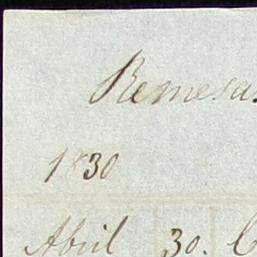 Remesas
1830
Abril 30.